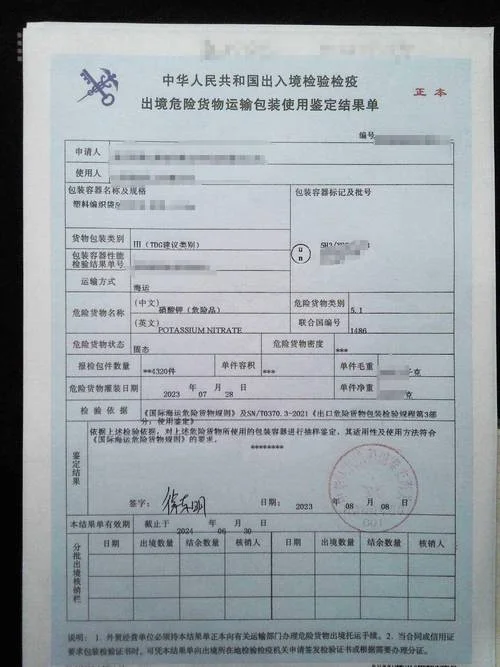 中华人民共和国出入境检验检疫
出境危险货物运输包装使用鉴定结果单
正本
编号
申请人
使用人
包装容器名称及规格
塑料编织袋
包装容器标记及批号
un
货物包装类别
III（TDG建议类别）
包装容器性能
检验结果单号
运输方式
海运
危险货物名称
(中文)
硝酸钾（危险品）
(英文)
POTASSIUM NITRATE
危险货物类别
5.1
联合国编号
1486
危险货物状态
固态
危险货物密度
***
报检包件数量
**4320件
单件容积
***
单件毛重
千克
危险货物灌装日期
2023 年 07 月 28 日
单件净重
检验依据
《国际海运危险货物规则》及SN/T0370.3-2021《出口危险货物包装检验规程第3部
分：使用鉴定》
鉴定结果
依据上述检验依据，对上述危险货物所使用的包装容器进行抽样鉴定，其适用性及使用方法符合
《国际海运危险货物规则》的要求。
********
签字：
日期： 2023 年 08 月 08 日
本结果单有效期
截止于 2024 年 06 月 30 日
分批出境核销栏
日期 出境数量 结余数量 核销人 日期 出境数量 结余数量 核销人
说明：1. 外贸经营单位必须持本结果单正本向有关运输部门办理危险货物出境托运手续。2. 当合同或信用证
要求包装检验证书时，可凭本结果单向出境所在地检验检疫机关申请签发检验证书或办理分证。